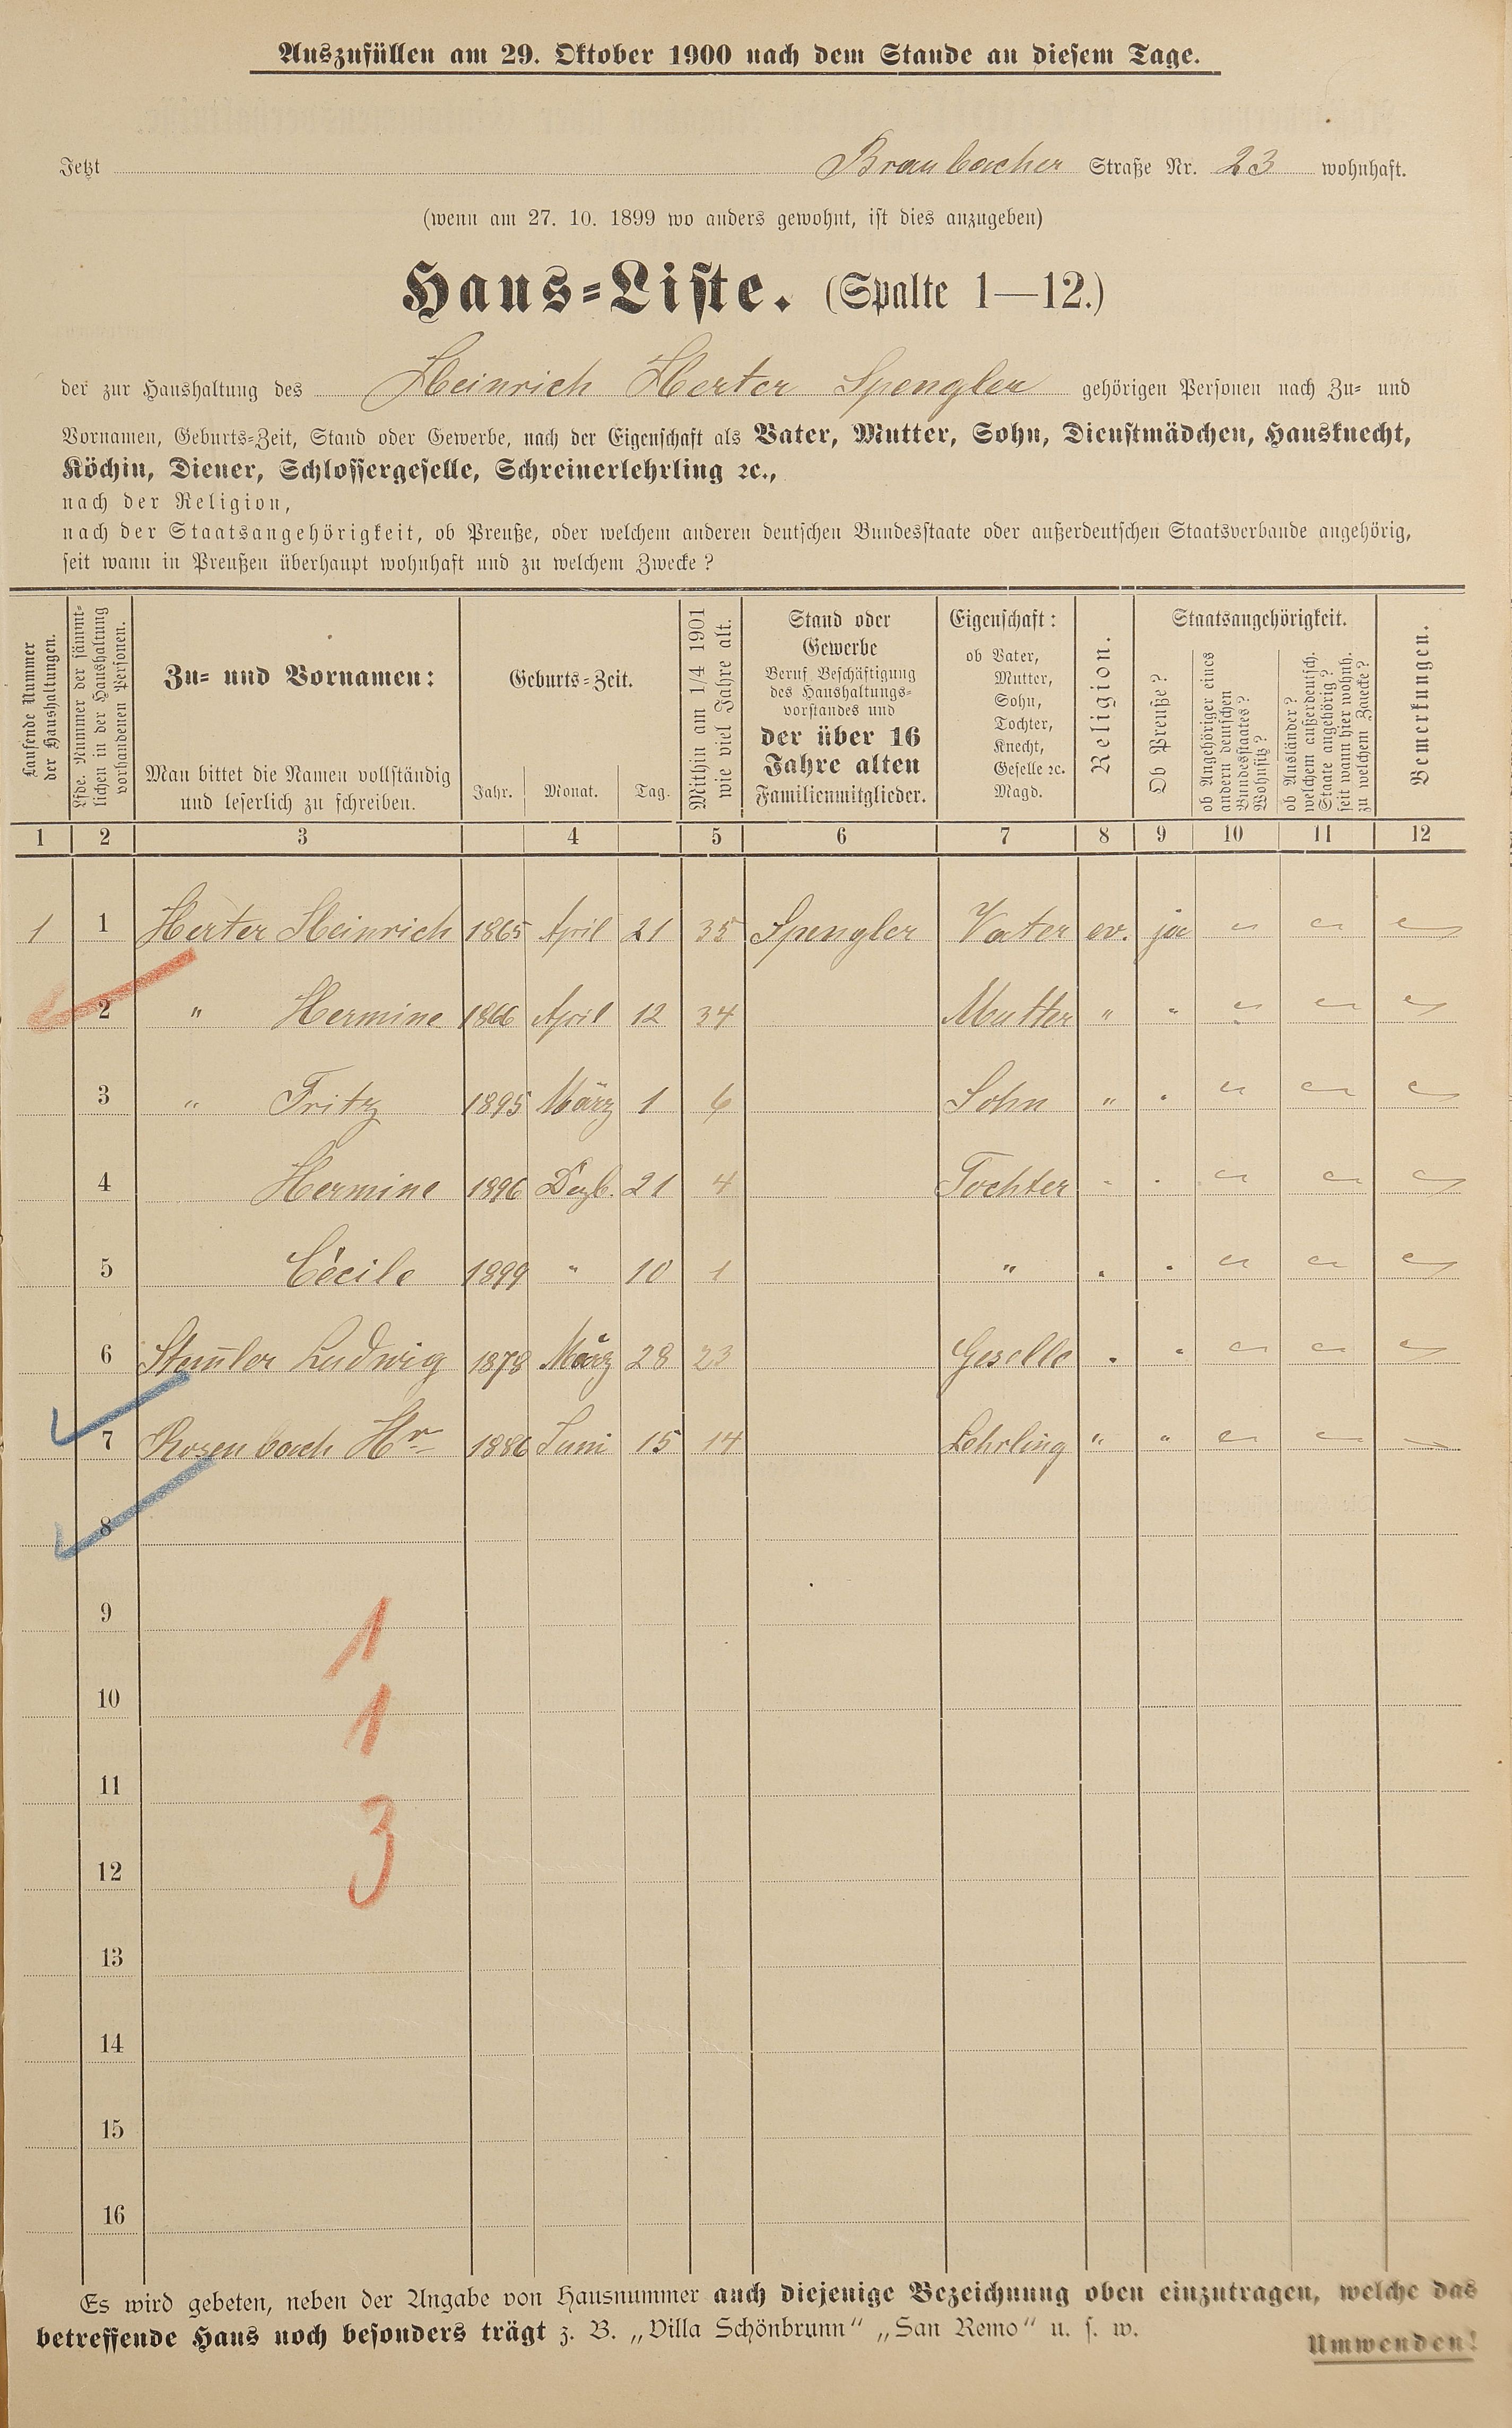 Auszufüllen am 29. Oktober 1900 nach dem Stande an diesem Tage.
Jetzt Braubacher Straße Nr. 23 wohnhaft.
(wenn am 27. 10. 1899 wo anders gewohnt, ist dies anzugeben)
Haus-Liste. (Spalte 1—12.)
der zur Haushaltung des Heinrich Herter Spengler gehörigen Personen nach Zu- und
Vornamen, Geburts-Zeit, Stand oder Gewerbe, nach der Eigenschaft als Vater, Mutter, Sohn, Dienstmädchen, Hausknecht,
Köchin, Diener, Schlossergeselle, Schreinerlehrling ꝛc.,
nach der Religion,
nach der Staatsangehörigkeit, ob Preuße, oder welchem anderen deutschen Bundesstaate oder außerdeutschen Staatsverbande angehörig,
seit wann in Preußen überhaupt wohnhaft und zu welchem Zwecke?
Laufende Nummer
der Haushaltungen.
Lfde. Nummer der sämmt-
lichen in der Haushaltung
vorhandenen Personen.
Zu- und Vornamen:
Man bittet die Namen vollständig
und leserlich zu schreiben.
Geburts-Zeit.
Jahr. Monat. Tag.
Mithin am 1/4 1901
wie viel Jahre alt.
Stand oder
Gewerbe
Beruf Beschäftigung
des Haushaltungs-
vorstandes und
der über 16
Jahre alten
Familienmitglieder.
Eigenschaft:
ob Vater,
Mutter,
Sohn,
Tochter,
Knecht,
Geselle ꝛc.
Magd.
Religion.
Staatsangehörigkeit.
Ob Preuße?
ob Angehöriger eines
andern deutschen
Bundesstaates?
Wohnsitz?
ob Ausländer?
welchem außerdeutsch.
Staate angehörig?
seit wann hier wohnh.
zu welchem Zwecke?
Bemerkungen.
1 2 3 4 5 6 7 8 9 10 11 12
1 1 Herter Heinrich 1865 April 21 35 Spengler Vater ev. ja " " "
2 " Hermine 1866 April 12 34 Mutter " " " " "
3 " Fritz 1895 März 1 6 Sohn " " " " "
4 Hermine 1896 Dezb. 21 4 Tochter " " " " "
5 Cécile 1899 " 10 1 " " " " " "
6 Stem̄ler Ludwig 1878 März 28 23 Geselle " " " " "
7 Rosenbach Hr 1886 Juni 15 14 Lehrling " " " " "
8
9
1
10
1
11
3
12
13
14
15
16
Es wird gebeten, neben der Angabe von Hausnummer auch diejenige Bezeichnung oben einzutragen, welche das
betreffende Haus noch besonders trägt z. B. „Villa Schönbrunn“ „San Remo“ u. s. w.
Umwenden!